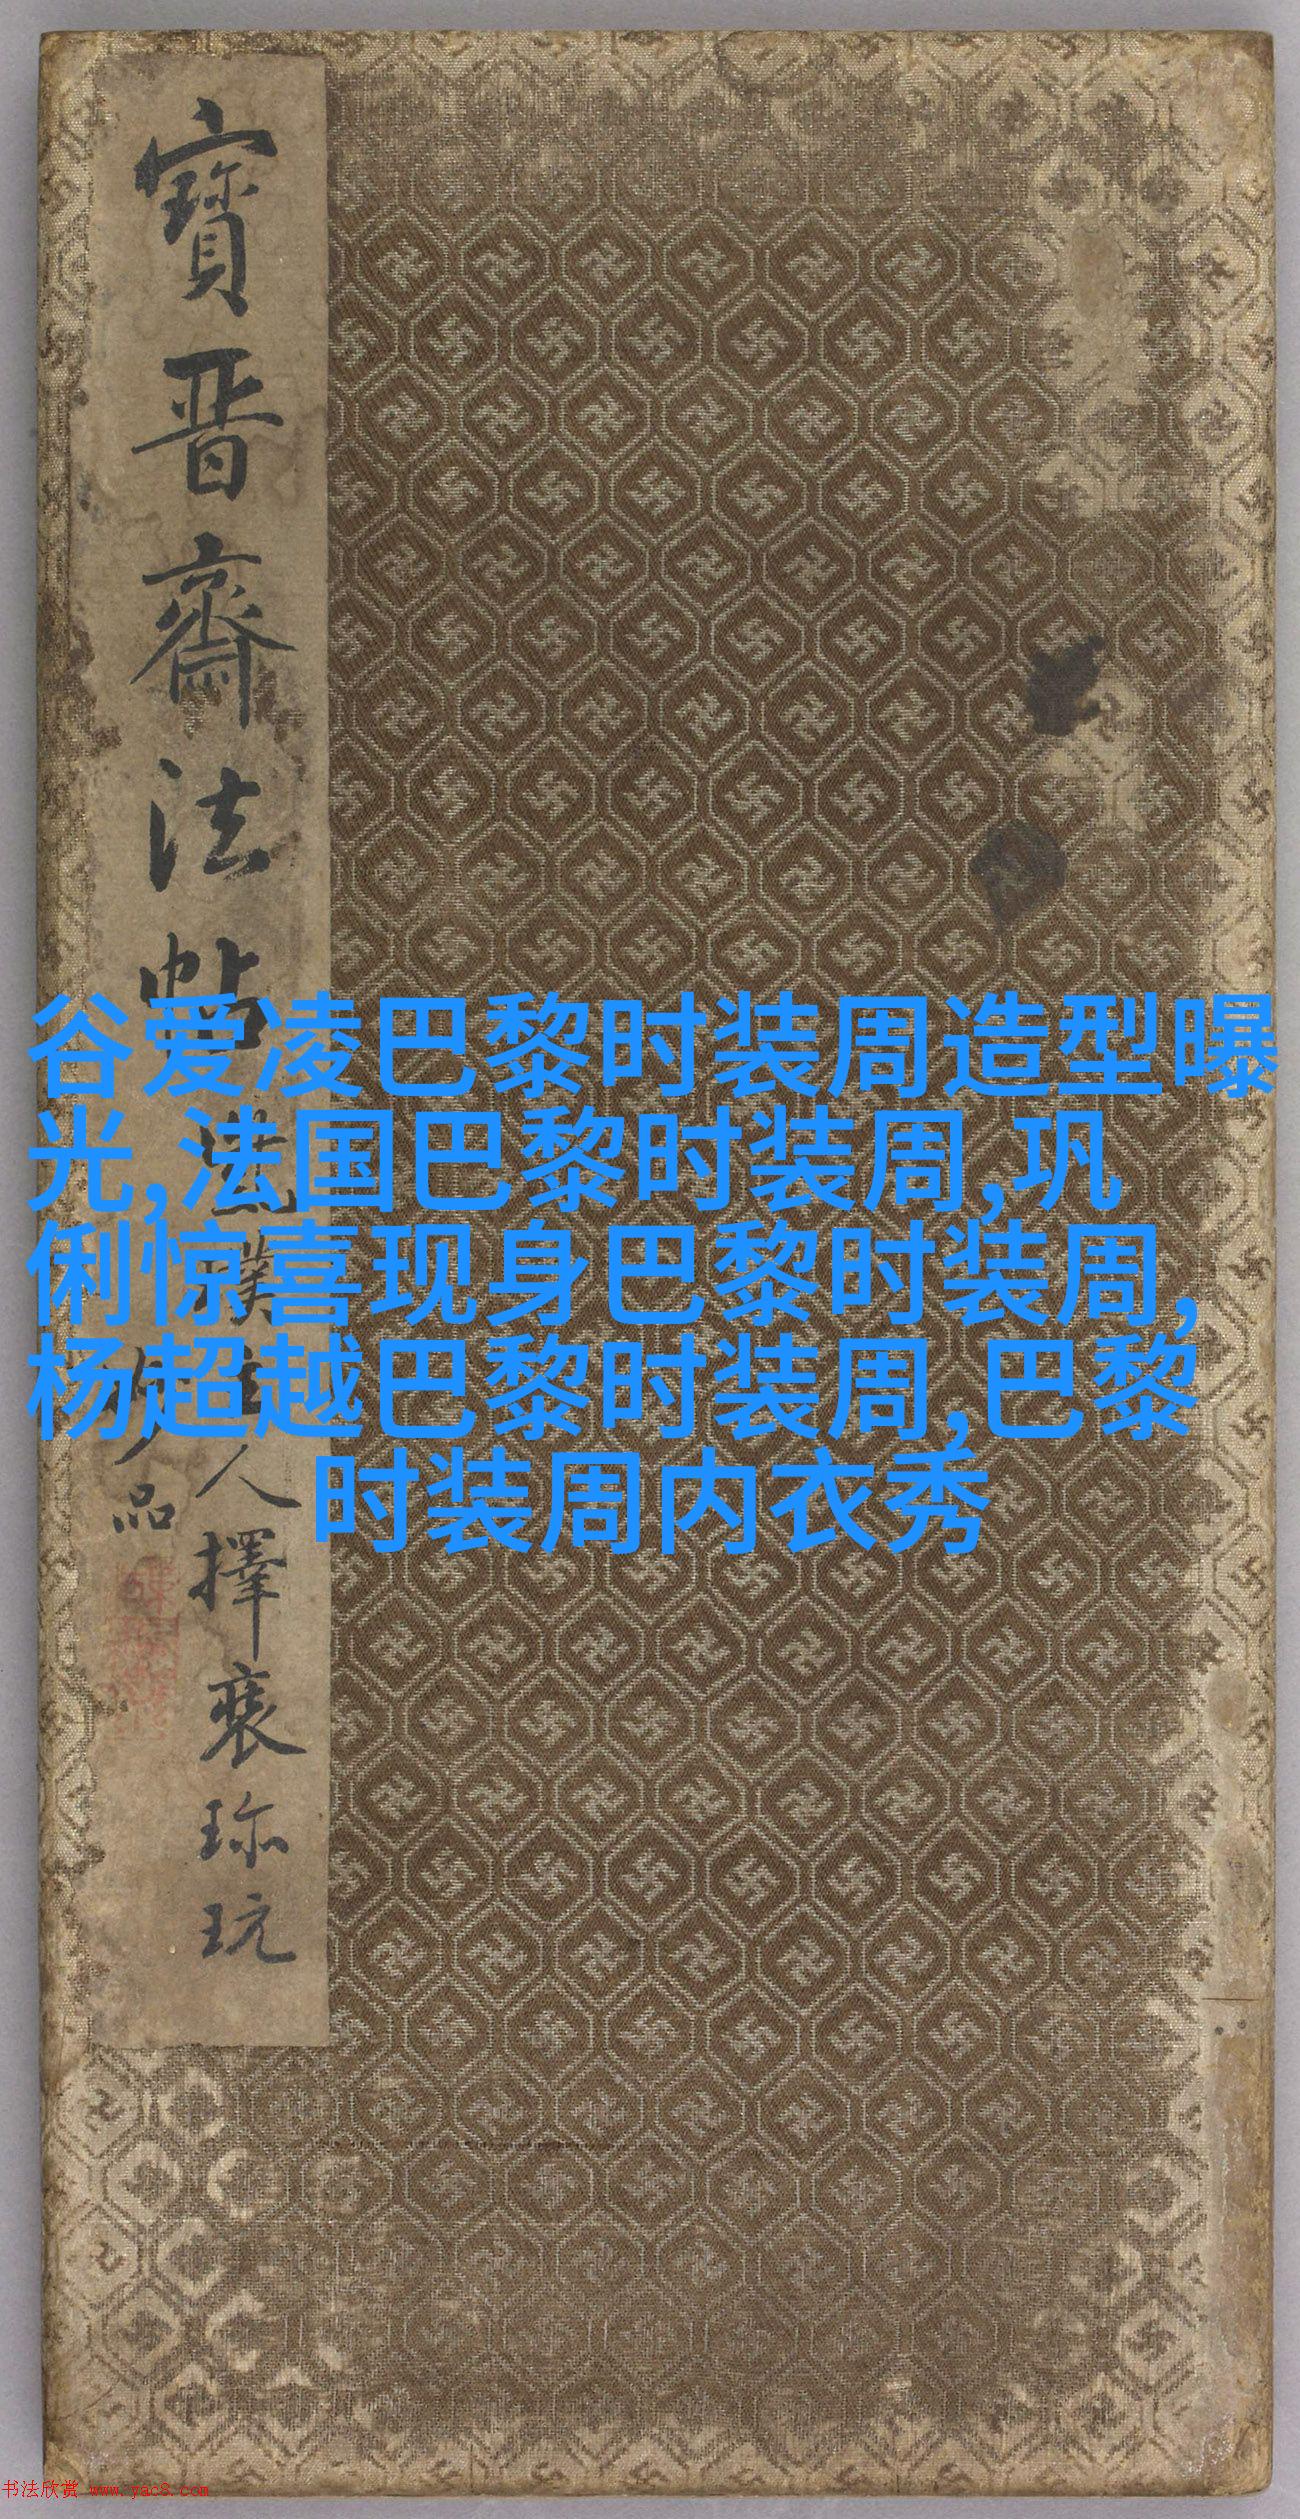 寶晉齋法帖
人擇裘珎玩
品
谷爱凌巴黎时装周造型曝
光,法国巴黎时装周,巩
俐惊喜现身巴黎时装周,
杨超越巴黎时装周,巴黎
时装周内衣秀
书法欣赏 www.yac8.com